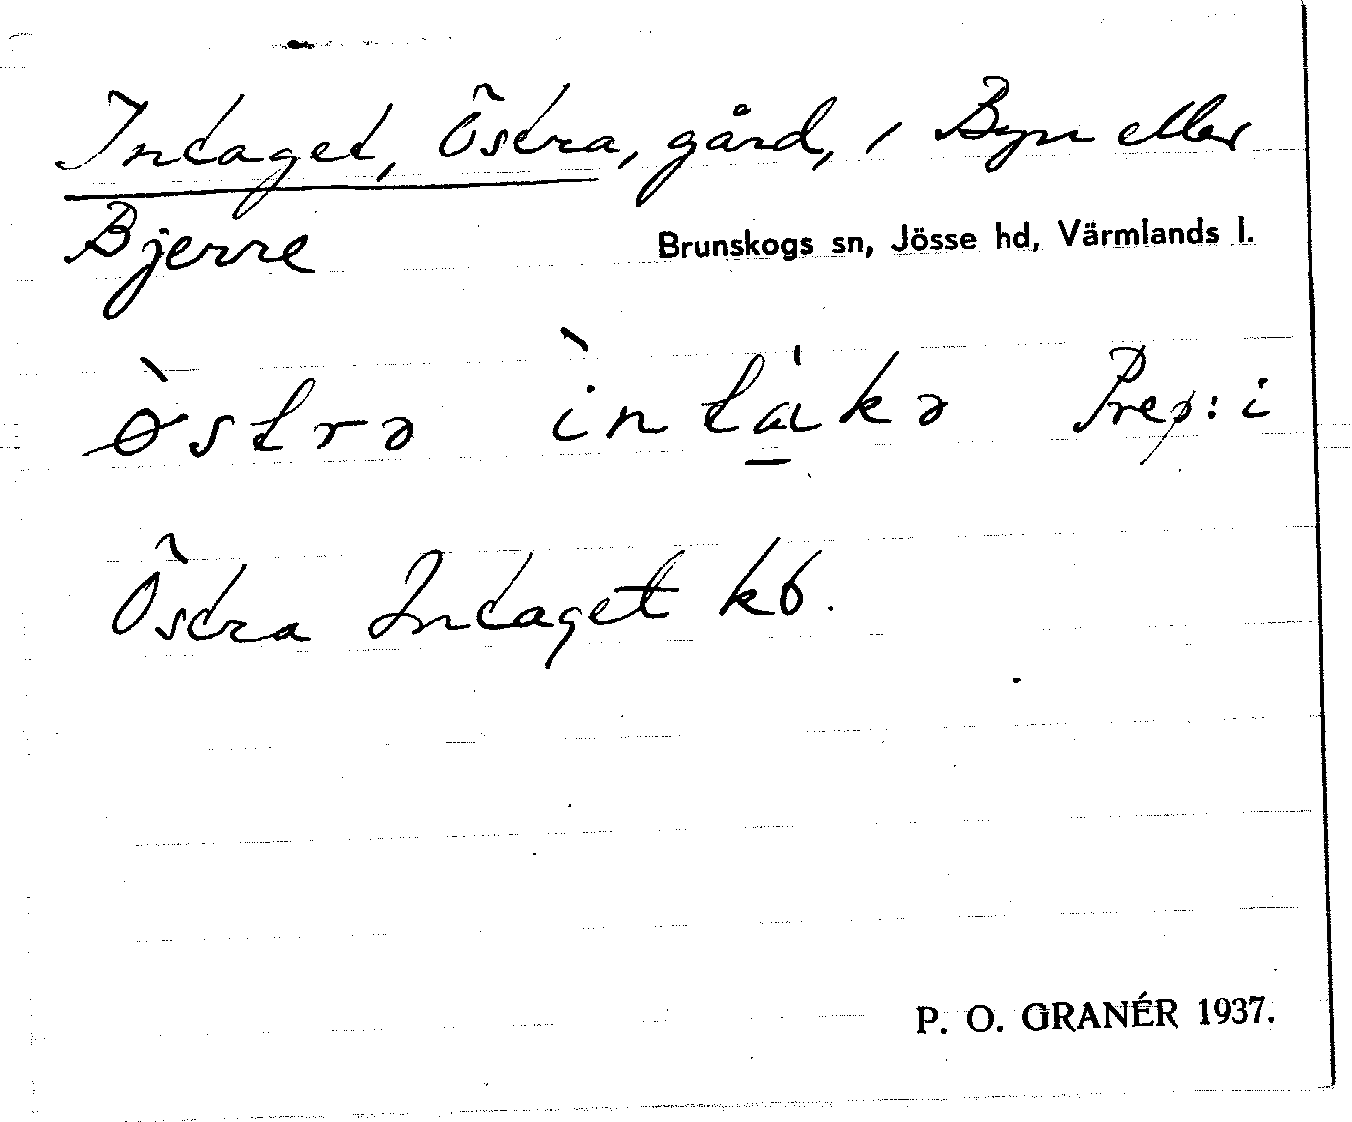 Intaget, Östra, gård, i Byn eller
Bjerre
Brunskogs sn, Jösse hd, Värmlands l.
ø̀strə ìntákə Prep: i
Östra Intaget kb.
P. O. GRANÉR 1937.